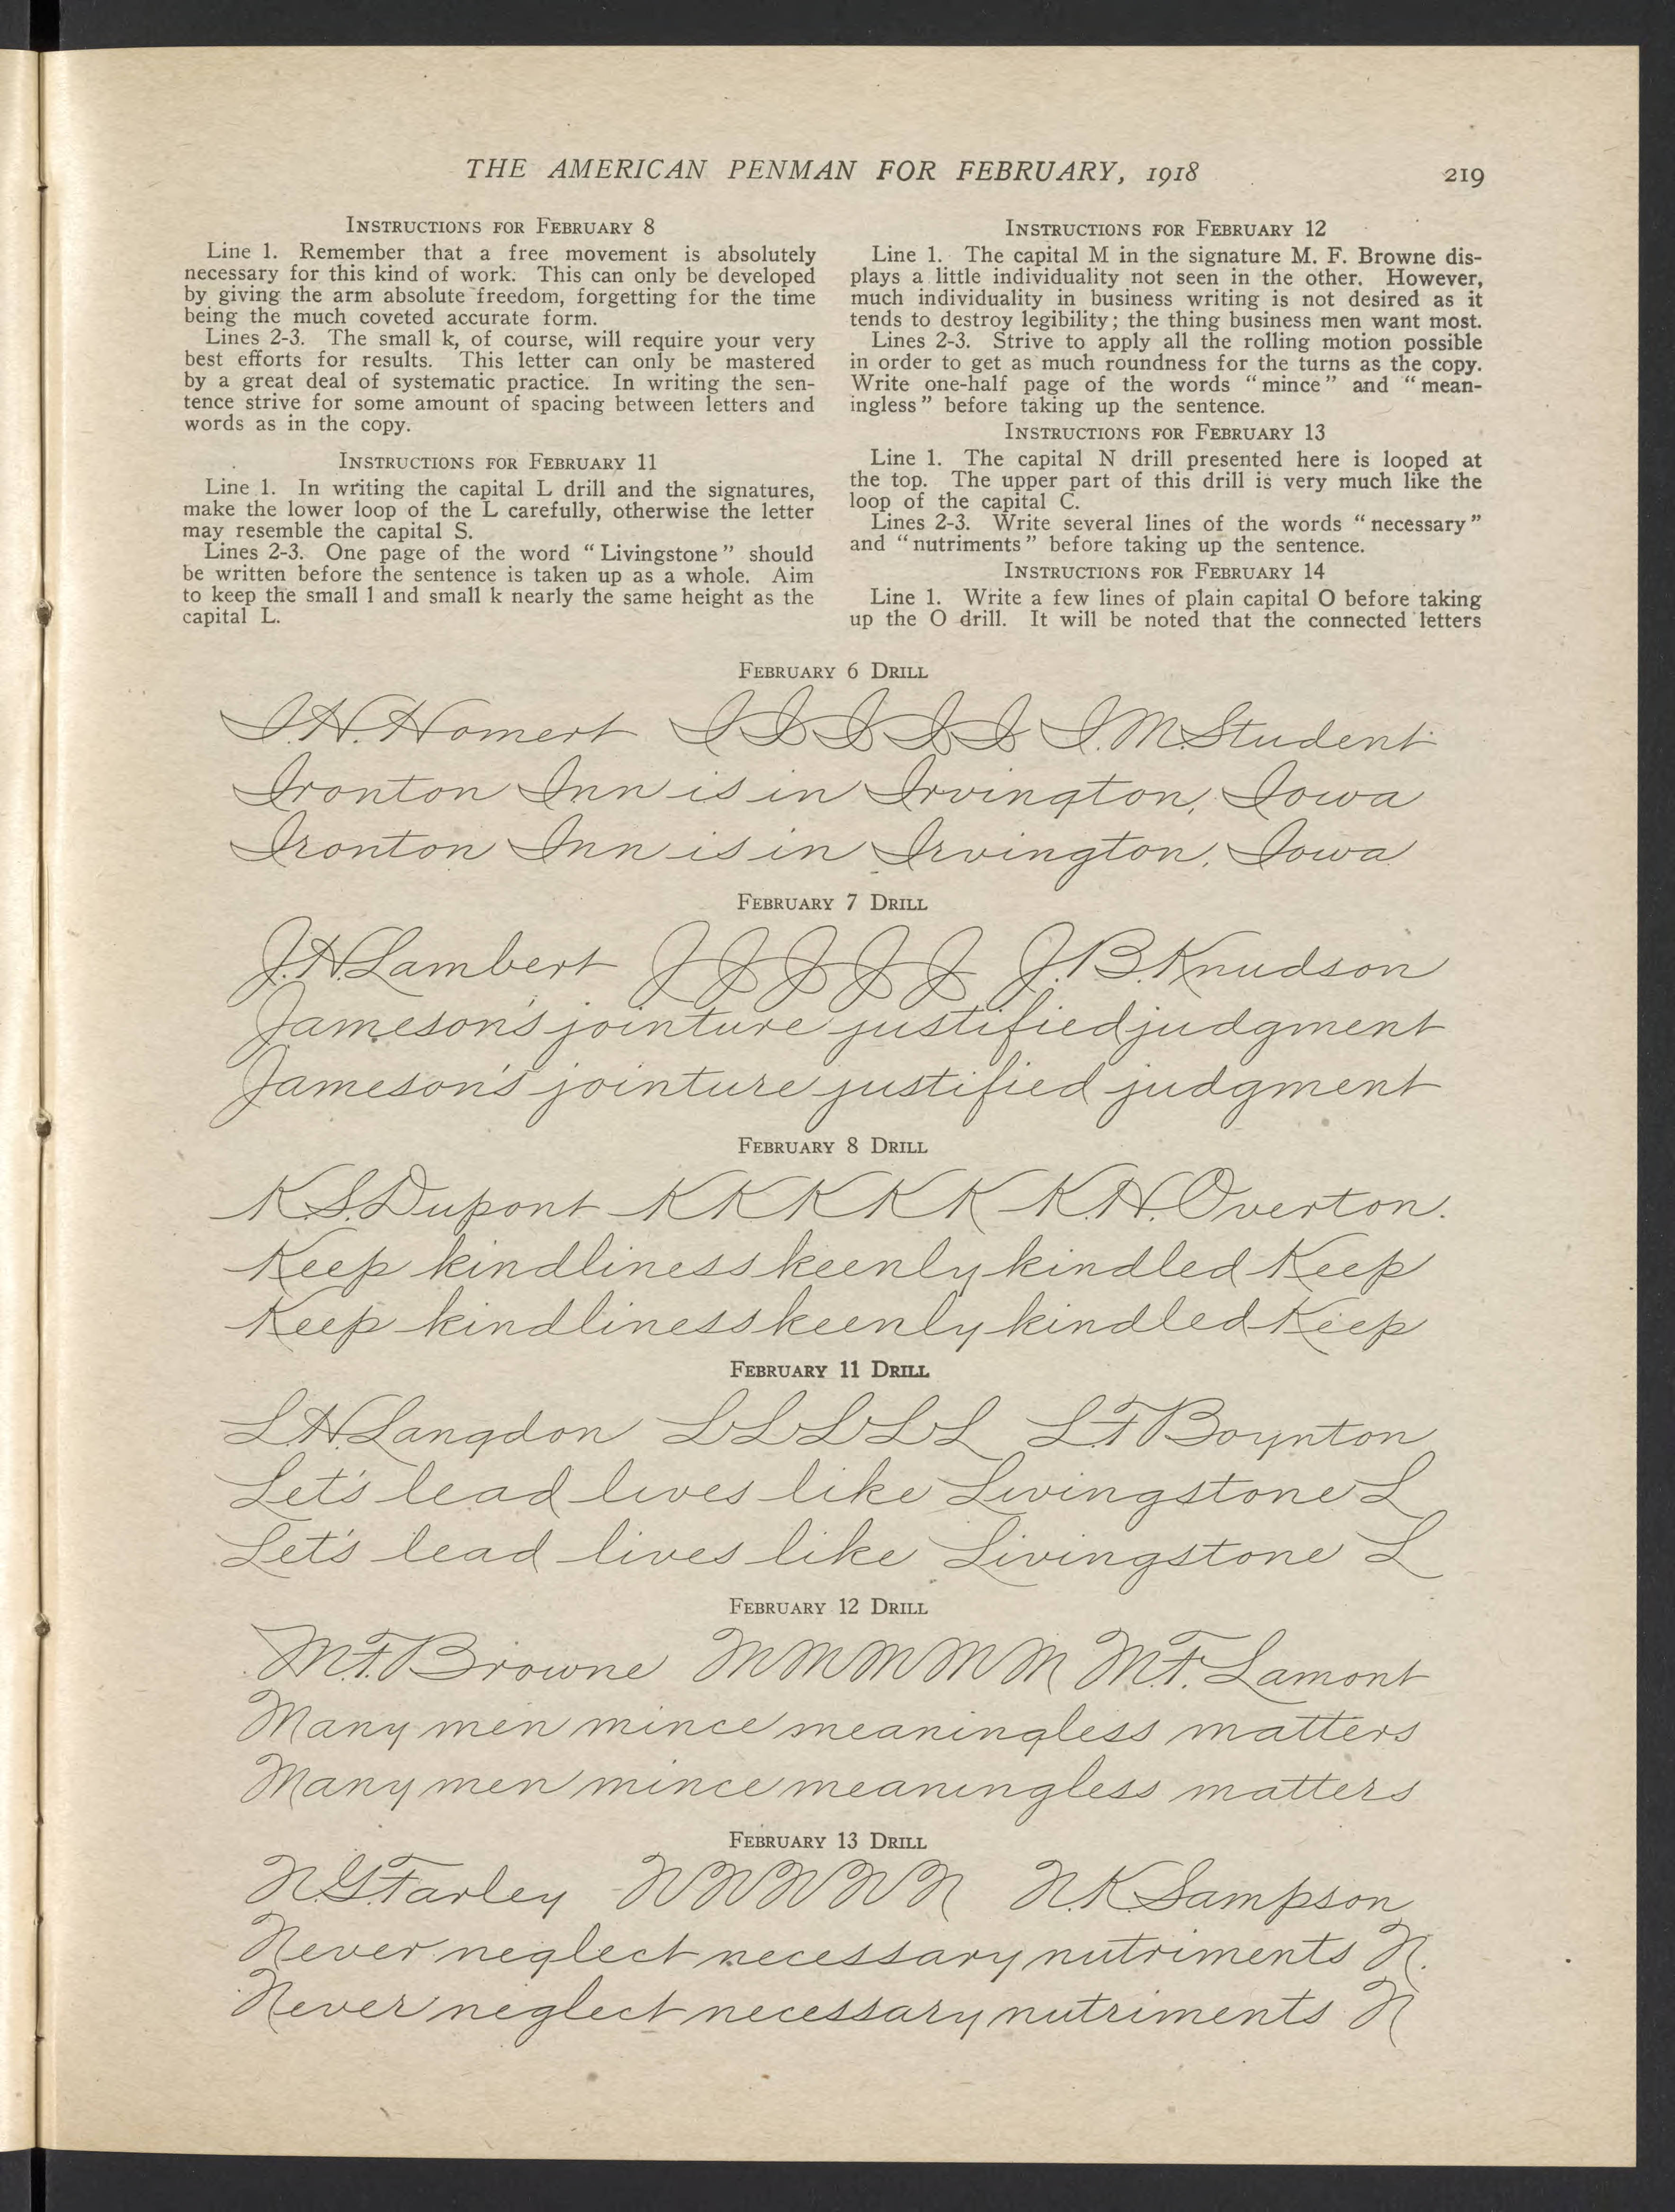 THE AMERICAN PENMAN FOR FEBRUARY, 1918
219
INSTRUCTIONS FOR FEBRUARY 8
Line 1. Remember that a free movement is absolutely
necessary for this kind of work. This can only be developed
by giving the arm absolute freedom, forgetting for the time
being the much coveted accurate form.
Lines 2-3. The small k, of course, will require your very
best efforts for results. This letter can only be mastered
by a great deal of systematic practice. In writing the sen-
tence strive for some amount of spacing between letters and
words as in the copy.
INSTRUCTIONS FOR FEBRUARY 11
Line 1. In writing the capital L drill and the signatures,
make the lower loop of the L carefully, otherwise the letter
may resemble the capital S.
Lines 2-3. One page of the word "Livingstone" should
be written before the sentence is taken up as a whole. Aim
to keep the small l and small k nearly the same height as the
capital L.
INSTRUCTIONS FOR FEBRUARY 12
Line 1. The capital M in the signature M. F. Browne dis-
plays a little individuality not seen in the other. However,
much individuality in business writing is not desired as it
tends to destroy legibility; the thing business men want most.
Lines 2-3. Strive to apply all the rolling motion possible
in order to get as much roundness for the turns as the copy.
Write one-half page of the words "mince" and "mean-
ingless" before taking up the sentence.
INSTRUCTIONS FOR FEBRUARY 13
Line 1. The capital N drill presented here is looped at
the top. The upper part of this drill is very much like the
loop of the capital C.
Lines 2-3. Write several lines of the words "necessary"
and "nutriments" before taking up the sentence.
INSTRUCTIONS FOR FEBRUARY 14
Line 1. Write a few lines of plain capital O before taking
up the O drill. It will be noted that the connected letters
FEBRUARY 6 DRILL
I.H. Homert I I I I I I.M. Student
Ironton Inn is in Irvington, Iowa
Ironton Inn is in Irvington, Iowa
FEBRUARY 7 DRILL
J.H. Lambert J J J J J J.B. Knudson
Jameson's jointure justified judgment
Jameson's jointure justified judgment
FEBRUARY 8 DRILL
K.S. Dupont K K K K K K.H. Overton.
Keep kindliness keenly kindled Keep
Keep kindliness keenly kindled Keep
FEBRUARY 11 DRILL
L.H. Langdon L L L L L L.F. Boynton
Let's lead lives like Livingstone L
Let's lead lives like Livingstone L
FEBRUARY 12 DRILL
M.F. Browne M M M M M M.F. Lamont
Many men mince meaningless matters
Many men mince meaningless matters
FEBRUARY 13 DRILL
N.G. Farley N N N N N N.K. Sampson
Never neglect necessary nutriments N.
Never neglect necessary nutriments N